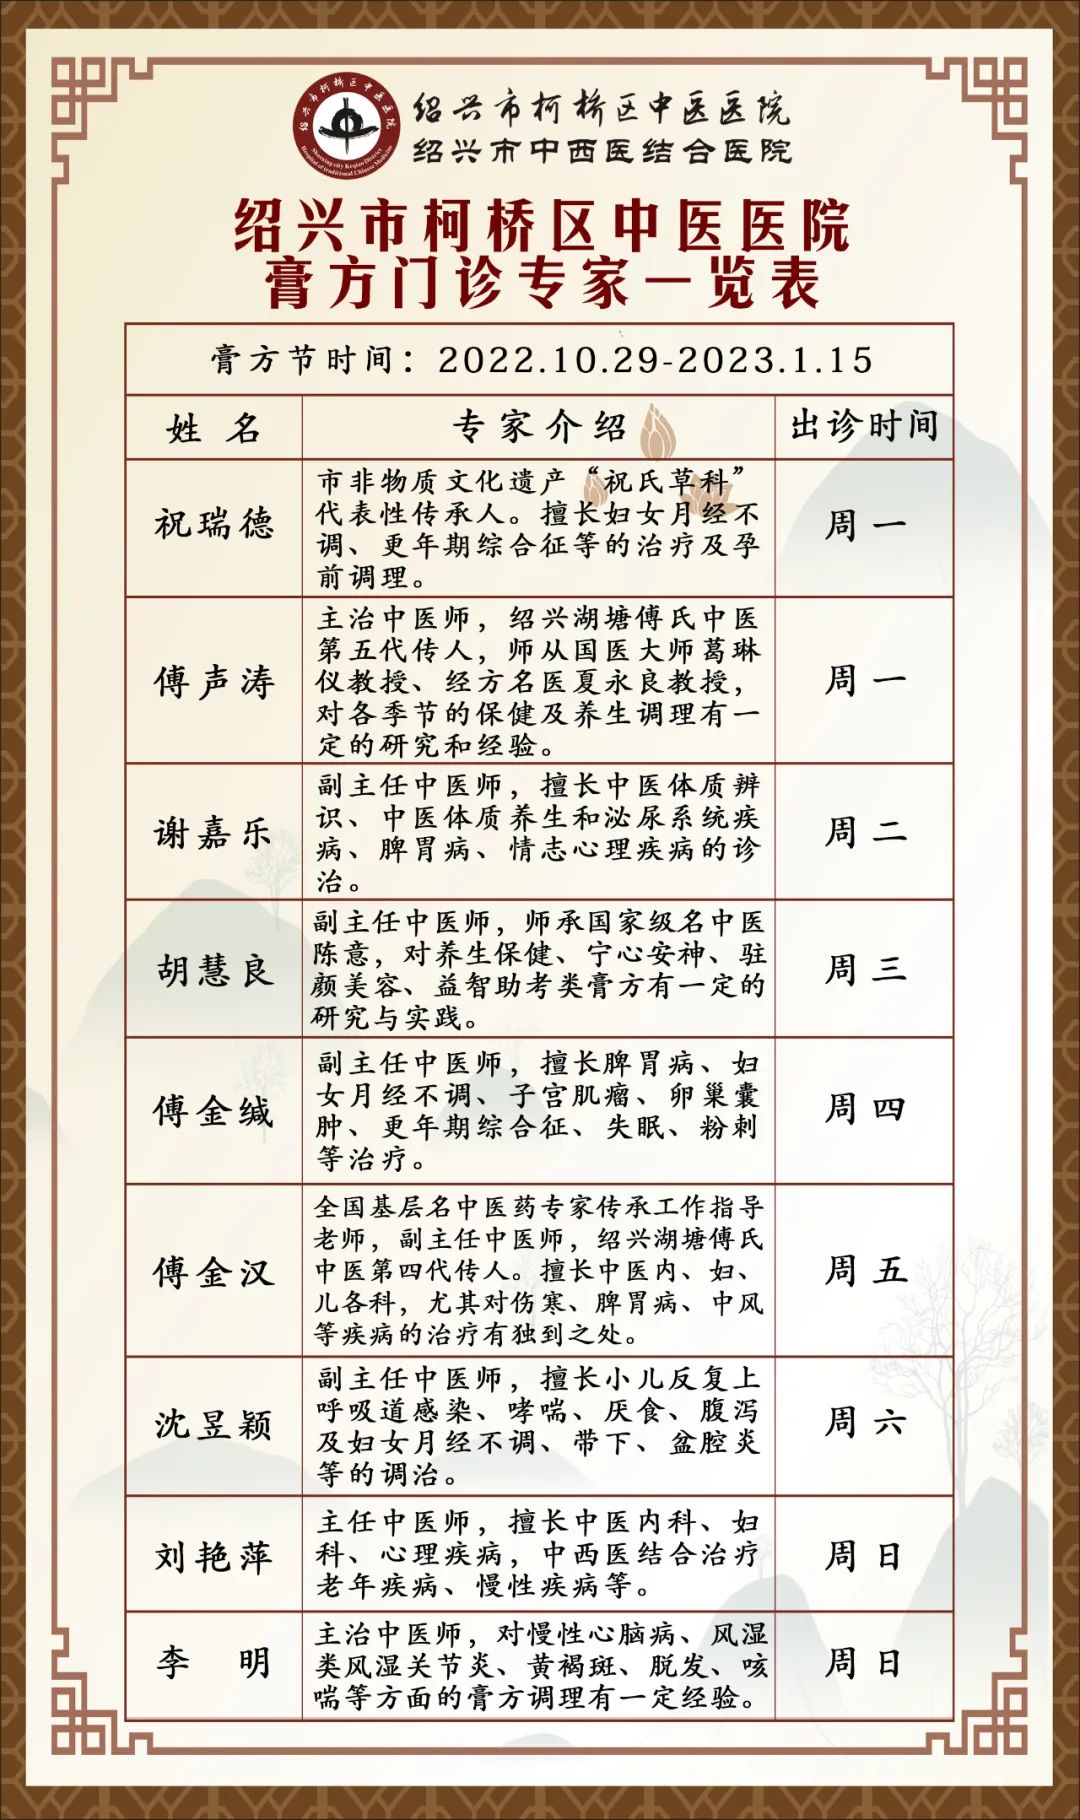 绍兴市柯桥区中医医院
绍兴市中西医结合医院
绍兴市柯桥区中医医院
Shaoxing city Keqiao District
Hospital of traditional Chinese Medicine
绍兴市柯桥区中医医院
膏方门诊专家一览表
膏方节时间：2022.10.29-2023.1.15
姓 名
专家介绍
出诊时间
祝瑞德
市非物质文化遗产“祝氏草科”
代表性传承人。擅长妇女月经不
调、更年期综合征等的治疗及孕
前调理。
周一
傅声涛
主治中医师，绍兴湖塘傅氏中医
第五代传人，师从国医大师葛琳
仪教授、经方名医夏永良教授，
对各季节的保健及养生调理有一
定的研究和经验。
周一
谢嘉乐
副主任中医师，擅长中医体质辨
识、中医体质养生和泌尿系统疾
病、脾胃病、情志心理疾病的诊
治。
周二
胡慧良
副主任中医师，师承国家级名中医
陈意，对养生保健、宁心安神、驻
颜美容、益智助考类膏方有一定的
研究与实践。
周三
傅金缄
副主任中医师，擅长脾胃病、妇
女月经不调、子宫肌瘤、卵巢囊
肿、更年期综合征、失眠、粉刺
等治疗。
周四
傅金汉
全国基层名中医药专家传承工作指导
老师，副主任中医师，绍兴湖塘傅氏
中医第四代传人。擅长中医内、妇、
儿各科，尤其对伤寒、脾胃病、中风
等疾病的治疗有独到之处。
周五
沈昱颖
副主任中医师，擅长小儿反复上
呼吸道感染、哮喘、厌食、腹泻
及妇女月经不调、带下、盆腔炎
等的调治。
周六
刘艳萍
主任中医师，擅长中医内科、妇
科、心理疾病，中西医结合治疗
老年疾病、慢性疾病等。
周日
李 明
主治中医师，对慢性心脑病、风湿
类风湿关节炎、黄褐斑、脱发、咳
喘等方面的膏方调理有一定经验。
周日